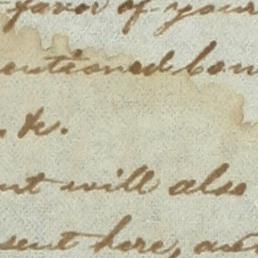 favor of your
entioned bon
, &c.
nt will also
sent here, and